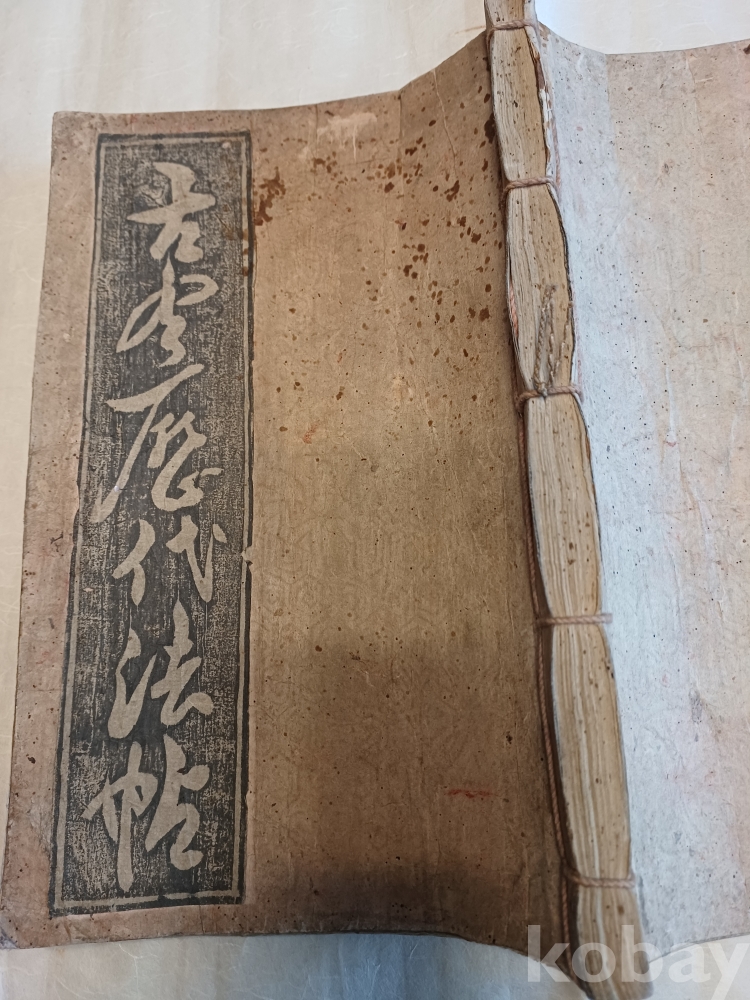 古今歷代法帖
kobay